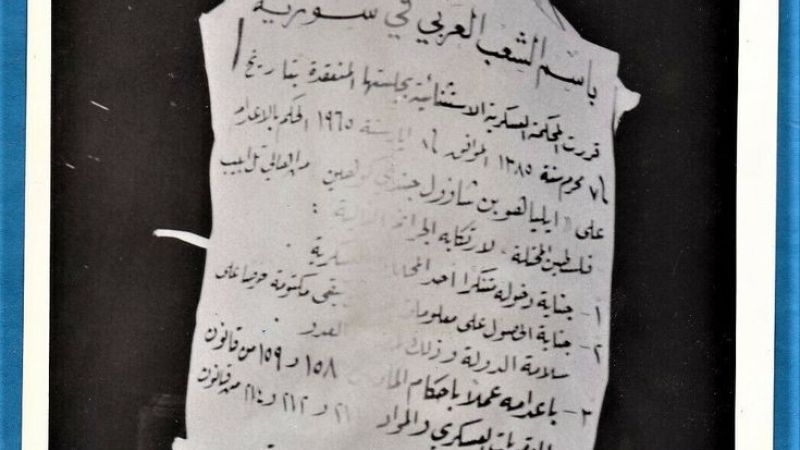 باسم الشعب العربي في سورية
قررت المحكمة العسكرية الاستثنائية بجلستها المنعقدة بتاريخ
محرم سنة ١٣٨٥ الموافق ٨ ايار سنة ١٩٦٥ الحكم بالاعدام
على ايلياهو بن شاؤول جندي كوهين من اهالي تل ابيب
فلسطين المحتلة، لارتكابه الجرائم التالية :
١- جناية دخوله متنكرا احد العسكرية
٢- جناية الحصول على معلومات تبقى مكتومة حرصا على
سلامة الدولة وذلك العدو
٣- باعدامه عملا باحكام ١٥٨ و ١٥٩ من قانون
العسكري والمواد و ٢١٢ و ٢١٤ من قانون